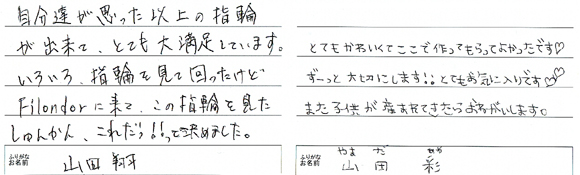 自分達が思った以上の指輪
が出来て、とても大満足しています。
いろいろ、指輪を見て回ったけど
Filondorに来て、この指輪を見た
しゅんかん、これだっ!!って決めました。
ふりがな
お名前
山田 翔平
とてもかわいくてここで作ってもらってよかったです♡
ずーっと大切にします!!とてもお気に入りです♡♡
また子供が産まれてきたらおねがいします。
ふりがな やまだ あや
お名前 山田 彩